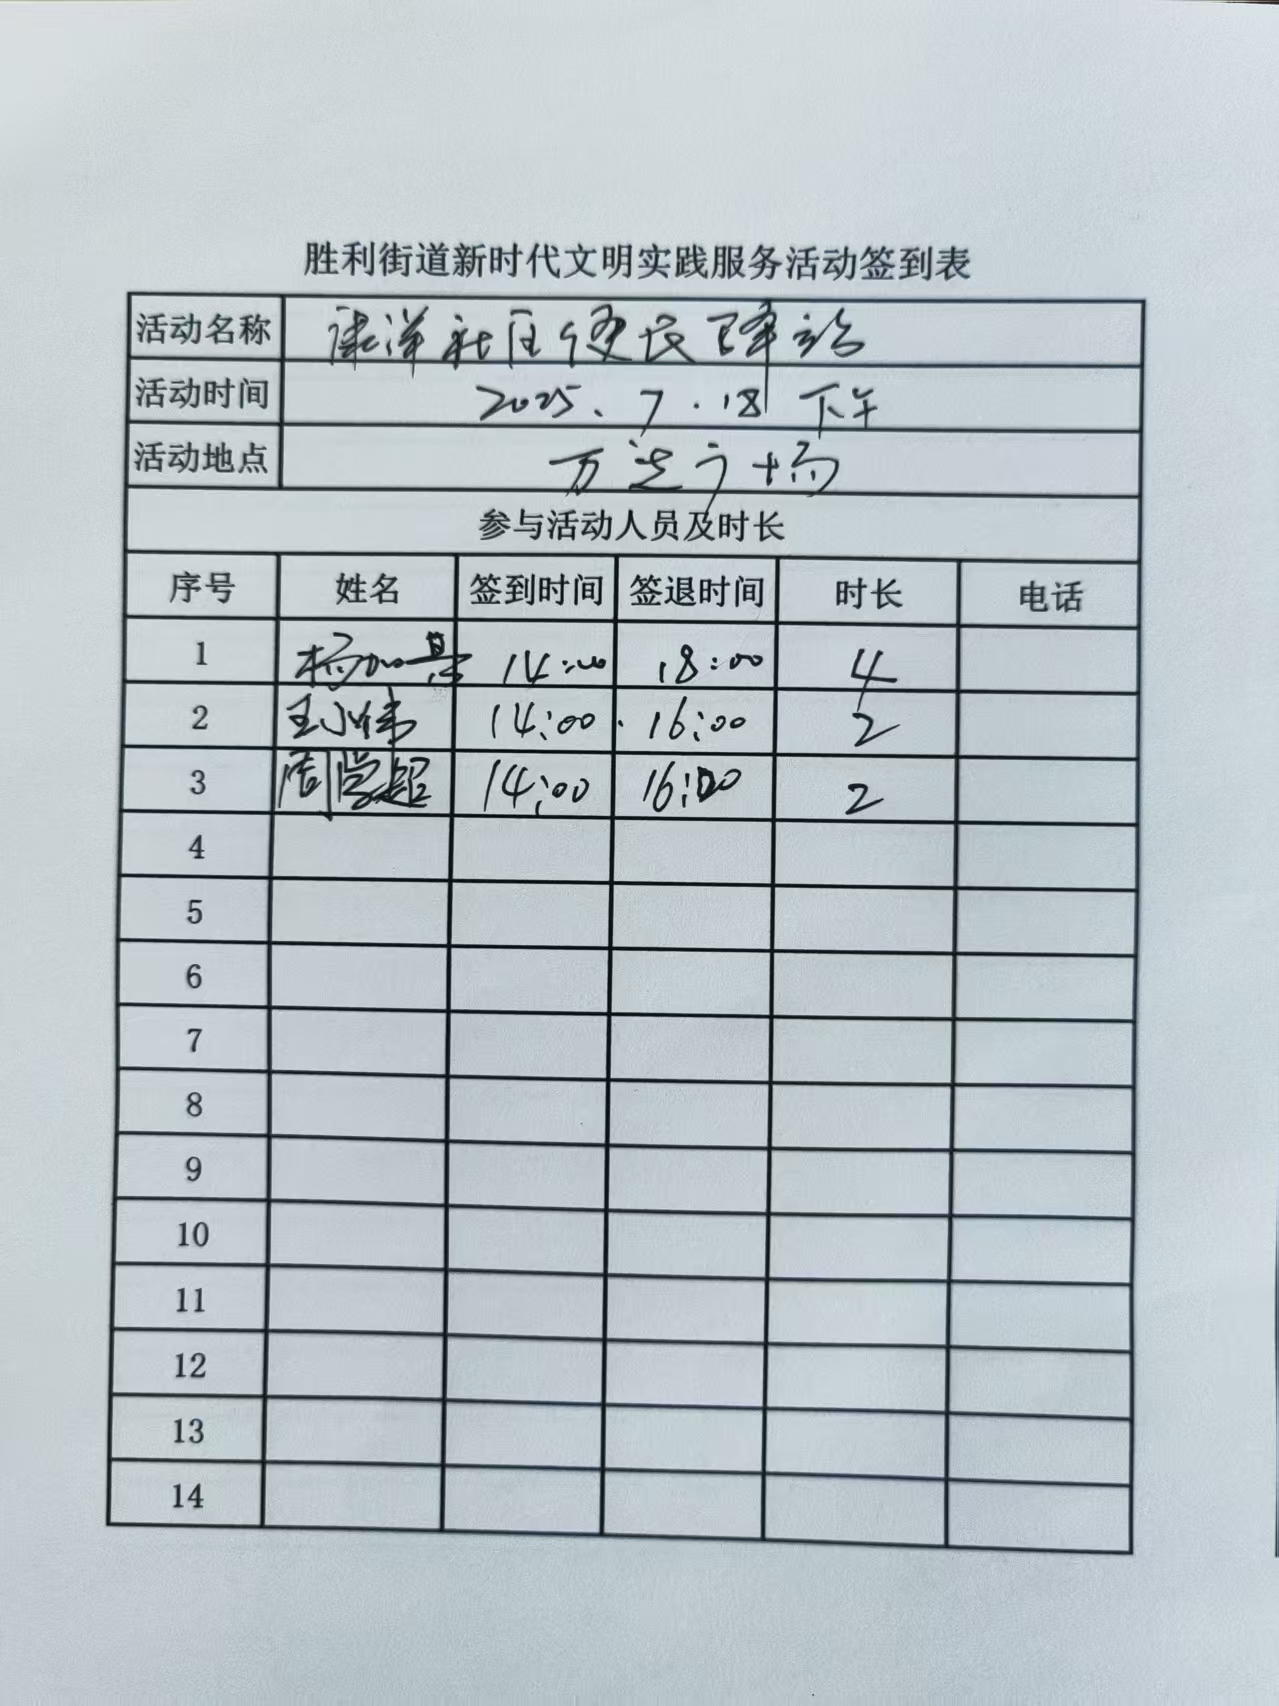 胜利街道新时代文明实践服务活动签到表
活动名称 社区便民 站
活动时间 2025.7.18 下午
活动地点 万达广场
参与活动人员及时长
序号 姓名 签到时间 签退时间 时长 电话
1 杨加 14:00 18:00 4
2 王小伟 14:00 16:00 2
3 周学超 14:00 16:00 2
4
5
6
7
8
9
10
11
12
13
14